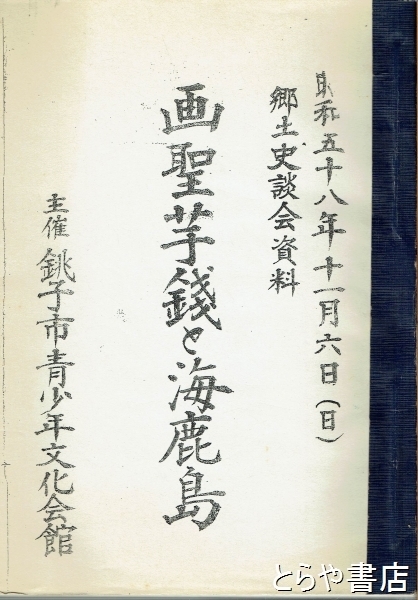 昭和五十八年十一月六日(日)
郷土史談会資料
画聖芋銭と海鹿島
主催 銚子市青少年文化会館
とらや書店